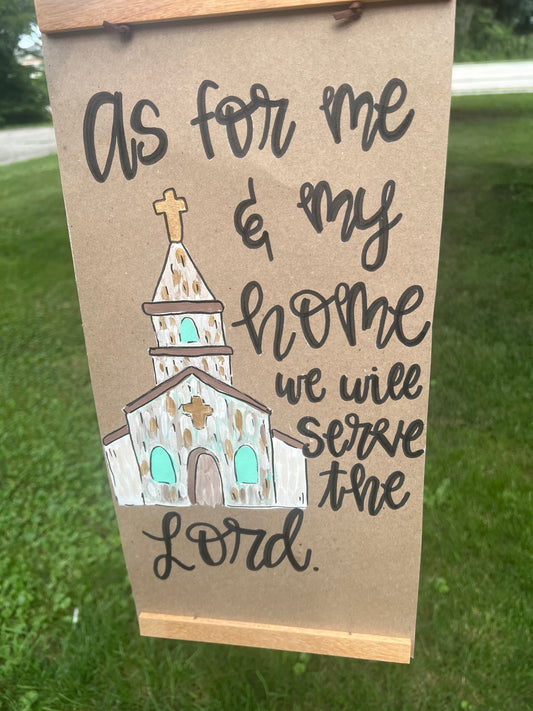 as for me
& my
home
we will
serve
the
Lord.